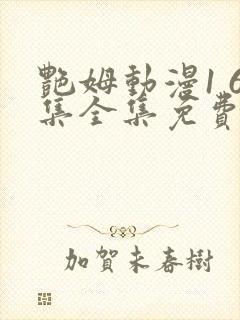 艷姆動漫1 6
集全集免費
加賀未春樹